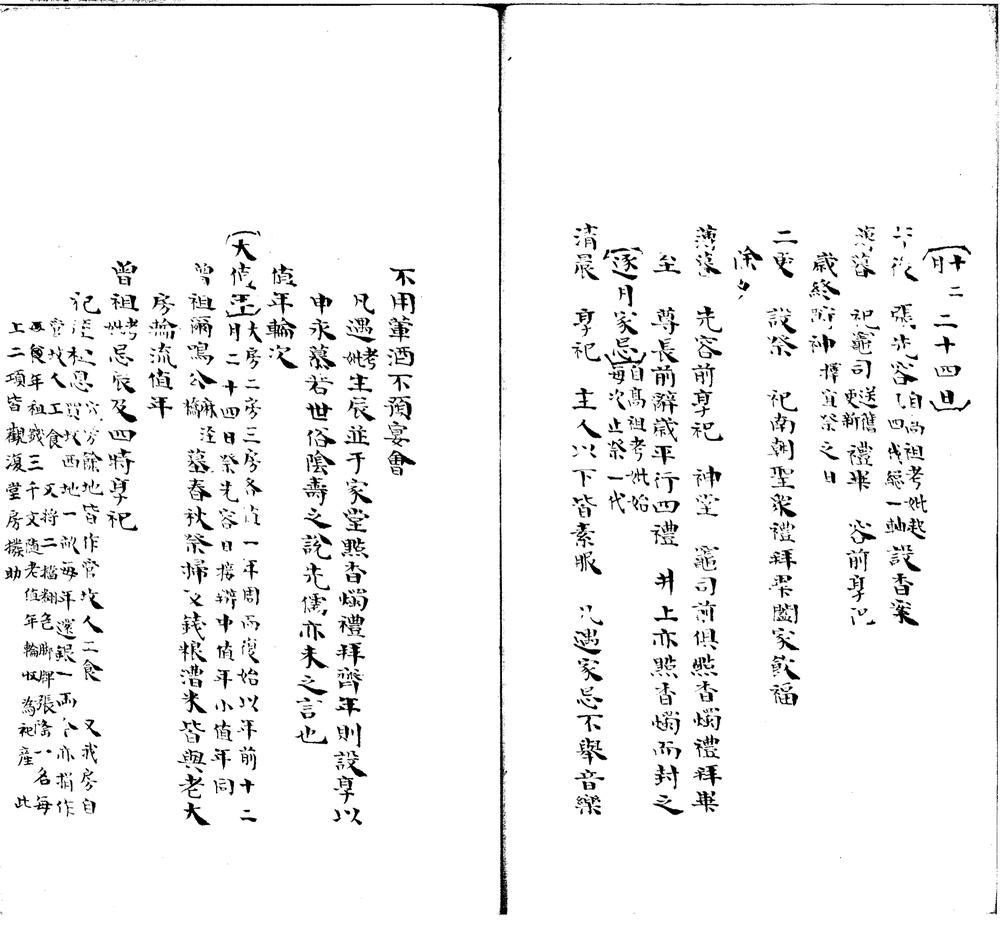 十二月二十四日
午後 張先容 自高祖考妣起 四代總一軸 設香案
薄暮 祀竈司 送舊更新 禮畢 容前享祀
歲終附神 擇宜祭之日
二更 設祭 祀南朝聖衆禮拜畢闔家飲福
除夕
薄暮 先容前享祀 神堂 竈司前俱點香燭禮拜畢
至 尊長前辭歲平行四禮 井上亦點香燭而封之
逐月家忌 自高祖考妣始 每次止祭一代
清晨 享祀 主人以下皆素服 凡遇家忌不舉音樂
不用葷酒不預宴會
凡遇考妣生辰並于家堂點香燭禮拜齊年則設享以
申永慕若世俗陰壽之説先儒亦未之言也
值年輪次
大值年 大房二房三房各值一年周而復始以年前十二
月二十四日祭先容日接辦中值年小值年同
曾祖爾鳴公 墓春秋祭掃及錢粮漕米皆與老大
房輪流值年
曾祖考妣忌辰及四時享祀
祀産 餘地皆作管坟人工食 又我房自
買坟西地一畝每年還銀一兩 亦捐作
管坟人工食 又將二 每
年租錢三千文随老值年輪收為祀産 此
上二項皆觀復堂房撥助